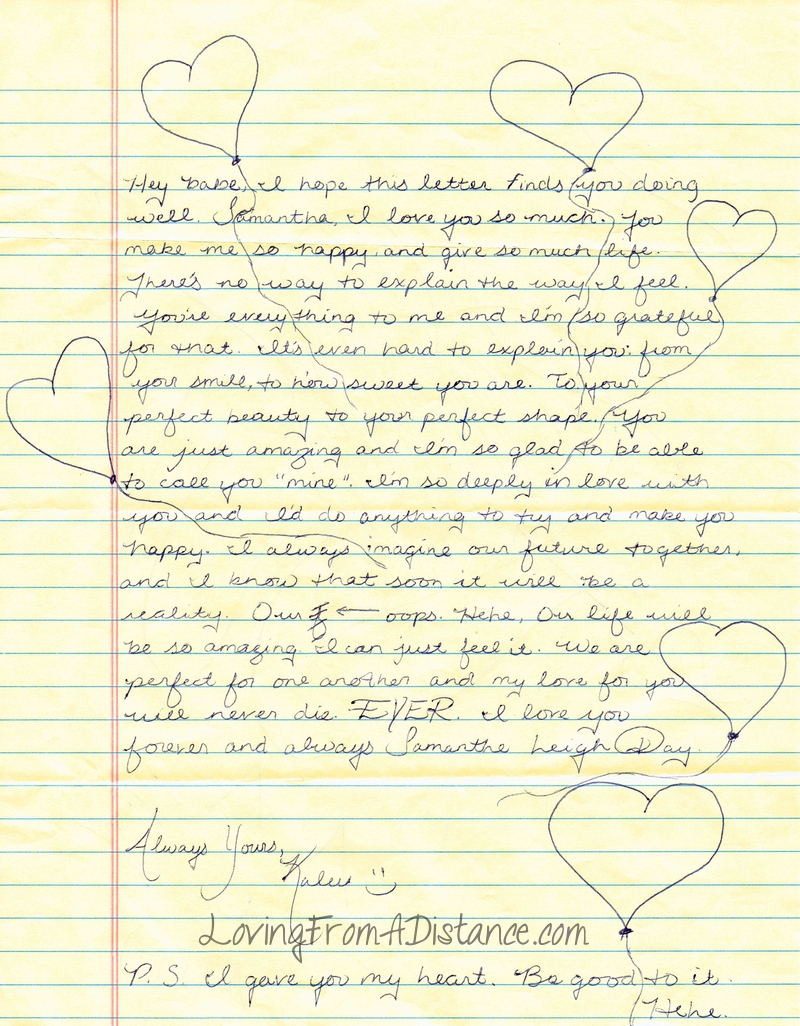 Hey babe, I hope this letter finds you doing
well. Samantha, I love you so much. You
make me so happy, and give so much life.
There's no way to explain the way I feel.
You're everything to me and I'm so grateful
for that. It's even hard to explain you: from
your smile, to how sweet you are. To your
perfect beauty to your perfect shape. You
are just amazing and I'm so glad to be able
to call you "mine". I'm so deeply in love with
you and I'd do anything to try and make you
happy. I always imagine our future together,
and I know that soon it will be a
reality. Our ← oops. Hehe, Our life will
be so amazing. I can just feel it. We are
perfect for one another and my love for you
will never die. EVER. I love you
forever and always Samantha Leigh Day.
Always Yours,
Kaleu :)
LovingFromADistance.com
P.S. I gave you my heart. Be good to it.
Hehe.